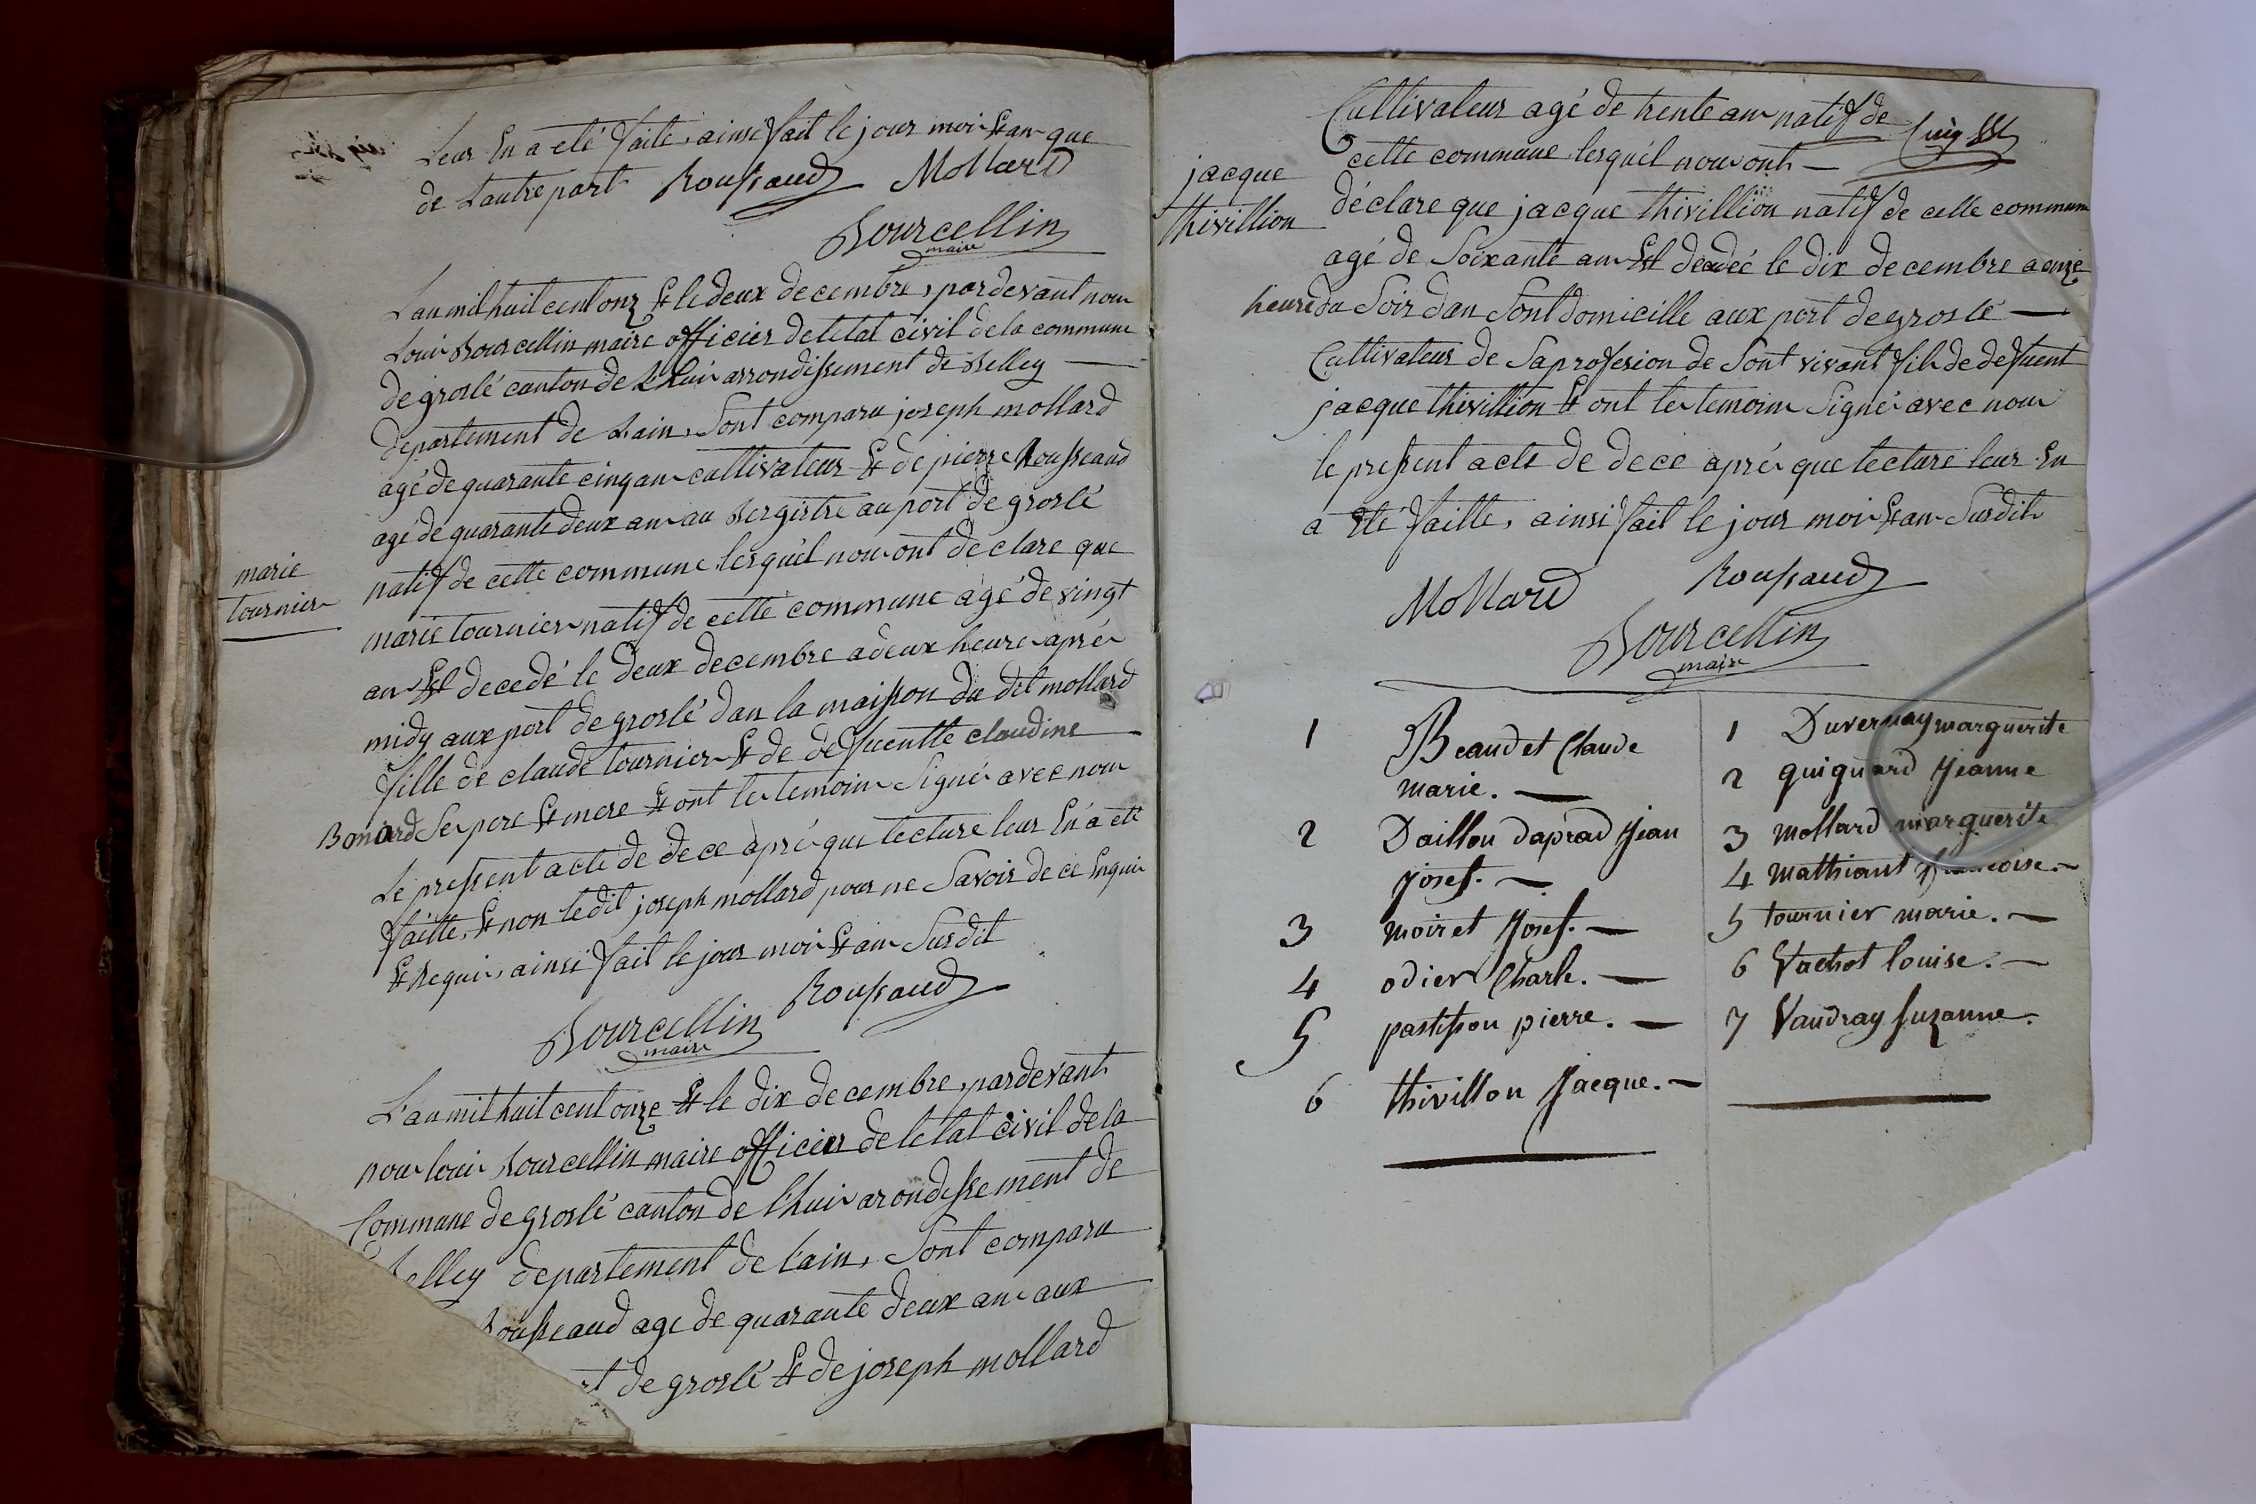 Leur En a eté faite, ainsi fait le jour moi Et an que
de Lautre part Roussaud Mollard
Bourcellin
maire
L'an mil huit cent onz Et le deux decembre, par devant nou
Loui Bourcellin maire officier de letat civil de la commune
de groslé canton de Lhui arrondissement de Belley
departement de Lain, Sont comparu joseph mollard
agé de quarante cinq an cultivateur Et de pierre Rousseaud
agé de quarante deux an au port de groslé
natif de cette commune lesquél nou ont declare que
marie
tournier
marie tournier natif de cette commune agé de vingt
an Est decedé le deux decembre a deux heure apré
midy aux port de groslé dan la maisson du dit mollard
fille de claude tournier Et de defuentte claudine
Bonard Se pere Et mere Et ont le temoin Signé avec nou
Le pressent acte de dece apré que lecture leur En a eté
faitte, Et non le dit joseph mollard pour ne Savoir de ce Enqui
Et Requi, ainsi fait le jour moi Et an Susdit
Bourcellin Roussaud
maire
L'an mil huit cent onze Et le dix decembre, par devant
nou loui Bourcellin maire officier de letat civil de la
Commune de groslé canton de l'hui arondissement de
Belley departement de l'ain, Sont comparu
Rousseaud age de quarante deux an aux
de groslé Et de joseph mollard
Cultivateur agé de trente an natif de
cette commune lesquél nou ont
jacque
thivillion
déclare que jacque thivillion natif de celle commune
agé de Soixante an Est decedeé le dix decembre a onze
heure du Soir dan Sont domicille aux port de groslé
Cultivateur de Saprofesion de Sont vivant fil de defuent
jacque thivillion Et ont le temoin Signé avec nou
le pressent acte de dece apré que lecture leur En
a Eté faitte, ainsi fait le jour moi Et an Susdit
Mollard Roussaud
Bourcellin
maire
1 Beaudet Claude
marie.
2 Daillon daprad Jean
Josef.
3 moiret Josef.
4 odier Charle.
5 pastisson pierre.
6 thivillon Jacque.
1 Duvernay marguerite
2 guiguard Jeanne
3 mollard marguerite
4 mathiant francoise.
5 tournier marie.
6 Vachot louise.
7 Vaudray Suzanne.